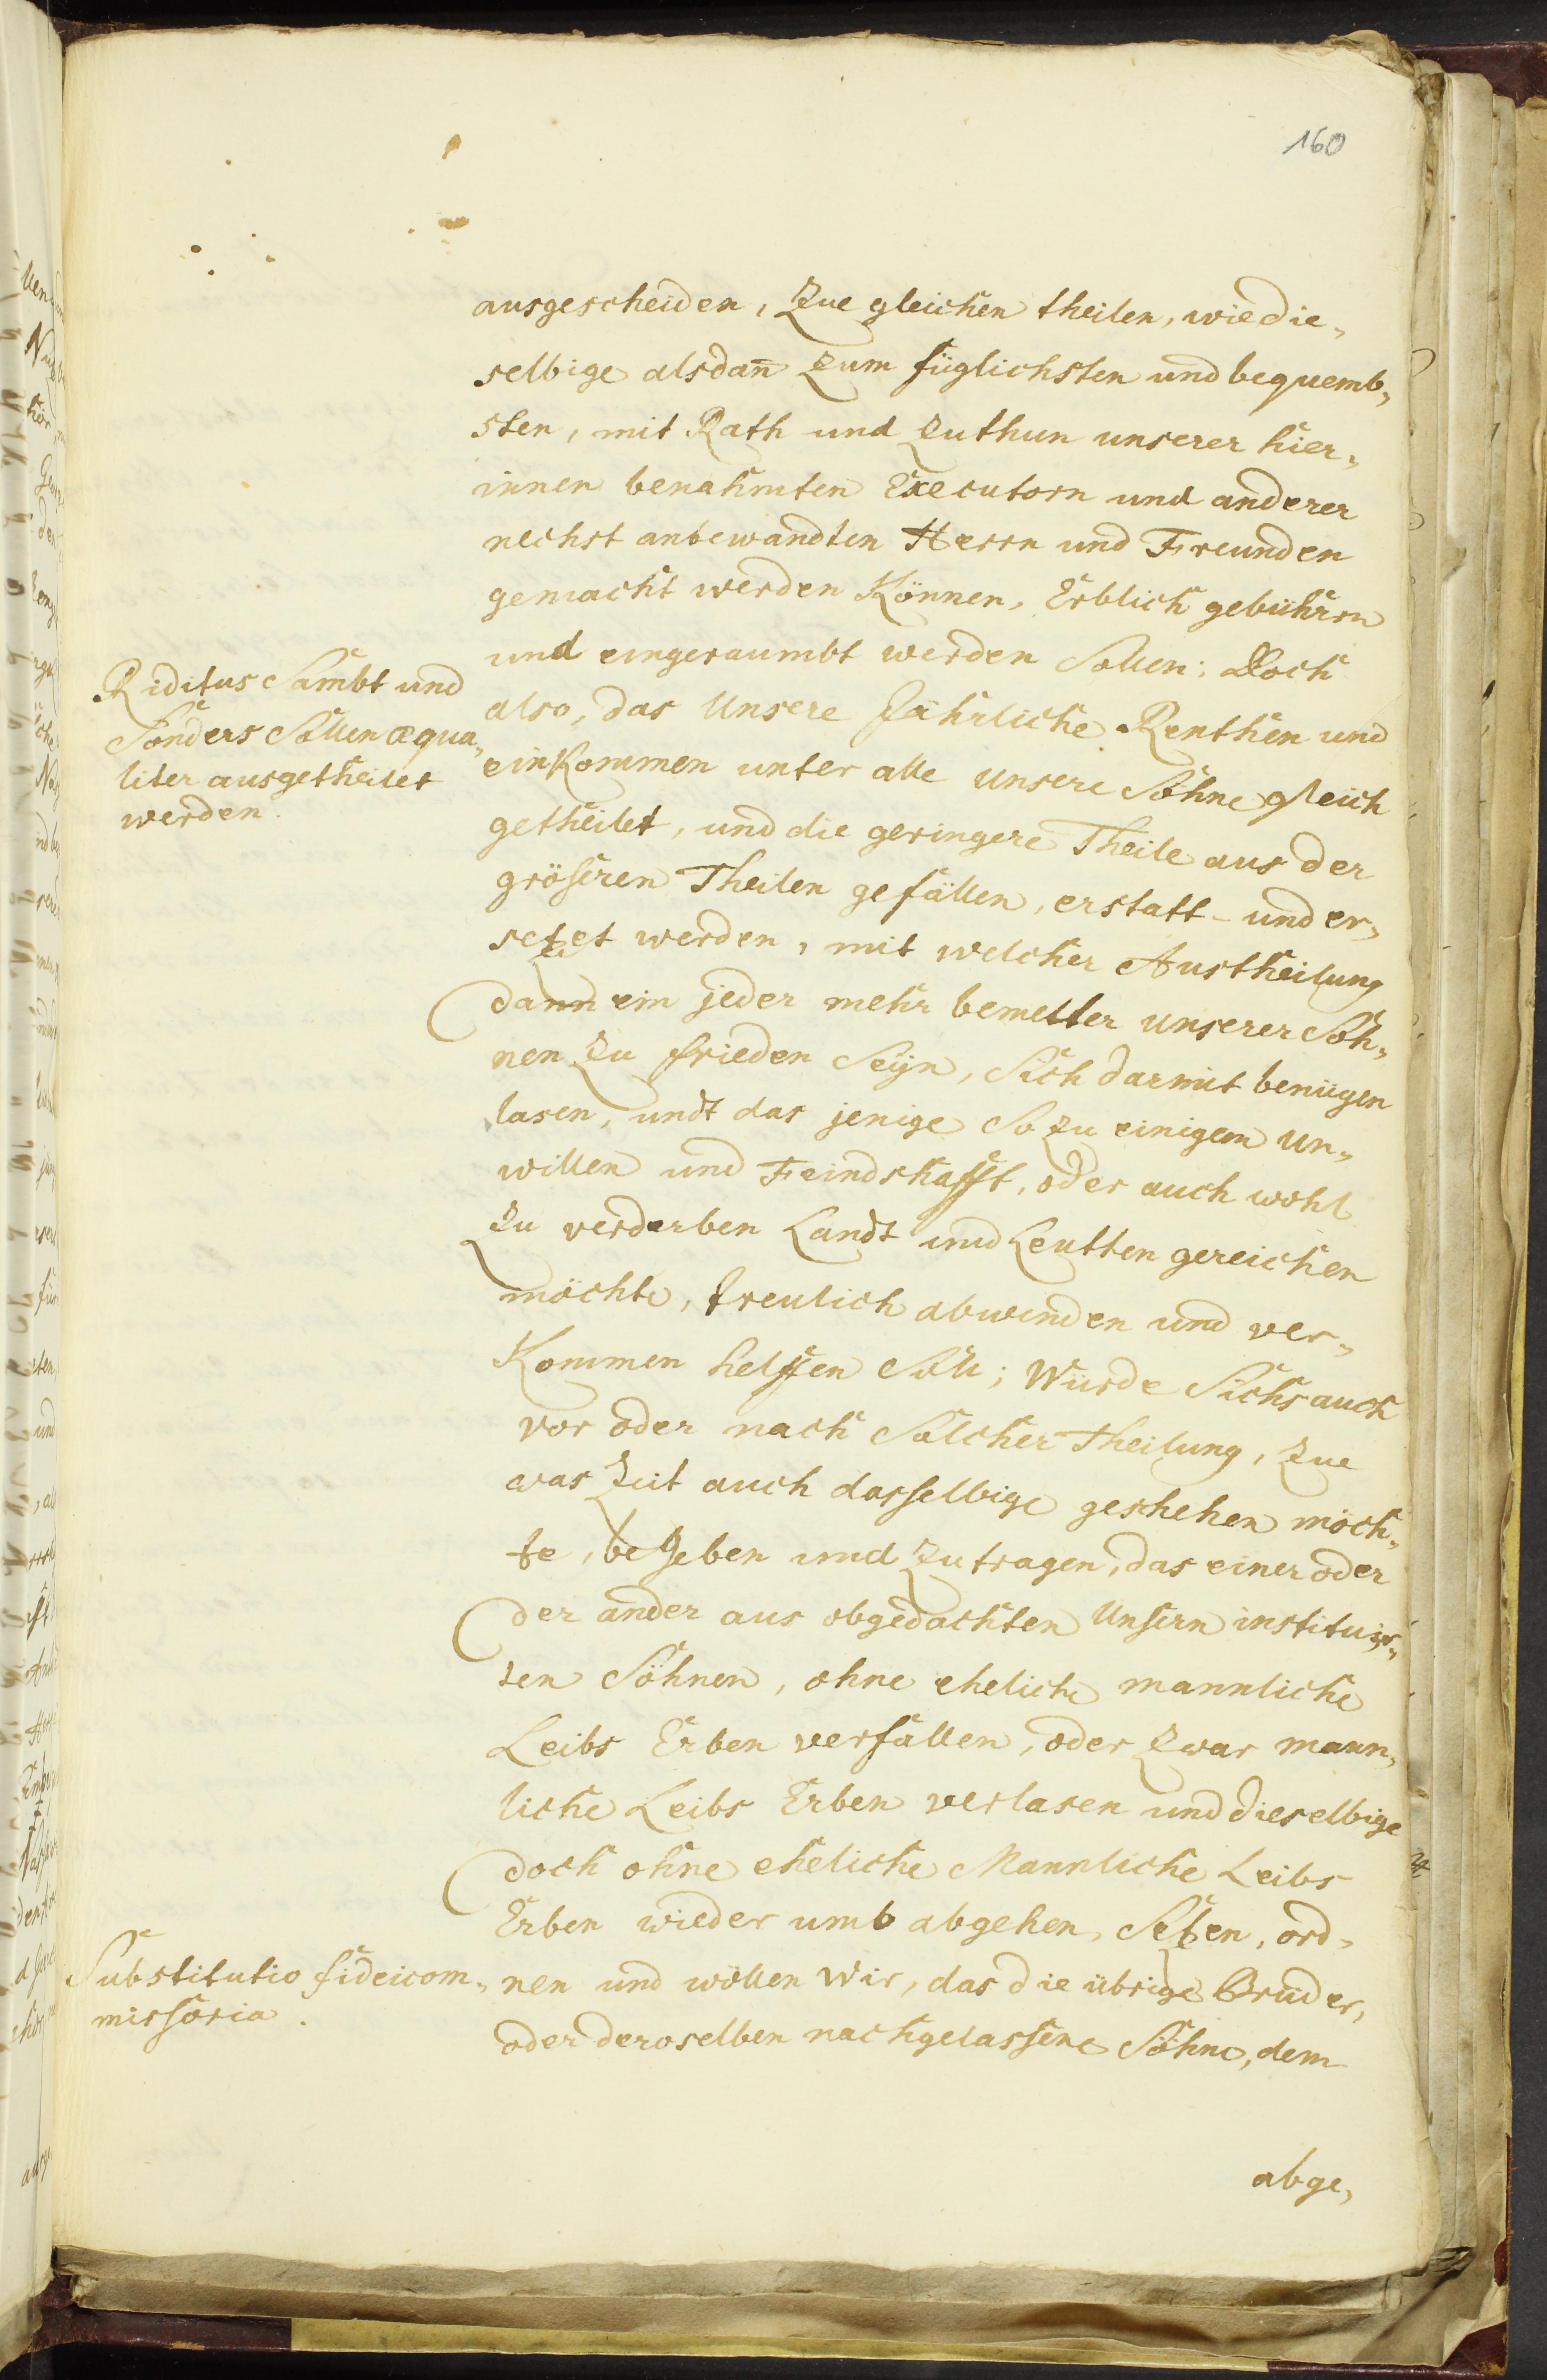 160
ausgescheiden, Zue gleichen theilen, wie die„
selbige alsdan̄ Zum füglichsten und bequemb„
sten, mit Rath und Zuthun unserer hier„
innen benahmten Executorn und anderer
nechst anbewandten Herrn und Freunden
gemacht werden Können, Erblich gebührn
und eingeraumbt werden Sollen; Doch
also, das Unsere Jährliche Renthen und
einKommen unter alle unsere Söhne gleich
getheilet, und die geringere Theile aus der
gröseren Theilen gefällen, erstatt- und er„
setzet werden, mit welcher Austheilung
dann ein jeder mehr bemelter unserer Söh„
nen Zu frieden Seÿn, Sich darmit benügen
lasen, undt das jenige So Zu einigem Un„
willen und Feindshafft, oder auch wohl
Zu verderben Landt und Leutten gereichen
möchte, treulich abwenden und ver„
Kommen helffen Soll; Würde Sichs auch
vor oder nach Solcher Theilung, Zue
was Zeit auch dasselbige geschehen möch„
te, beGeben und Zutragen, das einer oder
der ander aus obgedachten Unsern instituir„
ten Söhnen, ohne eheliche mannliche
Leibs Erben verfallen, oder Zwar mann„
liche Leibs Erben verlasen und dieselbige
doch ohne eheliche Mannliche Leibs
Erben wieder umb abgehen, Setzen, ord„
nen und wöllen Wir, das die übrige Brüder,
oder deroselben nachgelassene Söhne, dem
abge„
Riditus Sambt und
Sonders Sollen æqua„
liter ausgetheilet
werden.
Substitutio fideicom„
missoria.